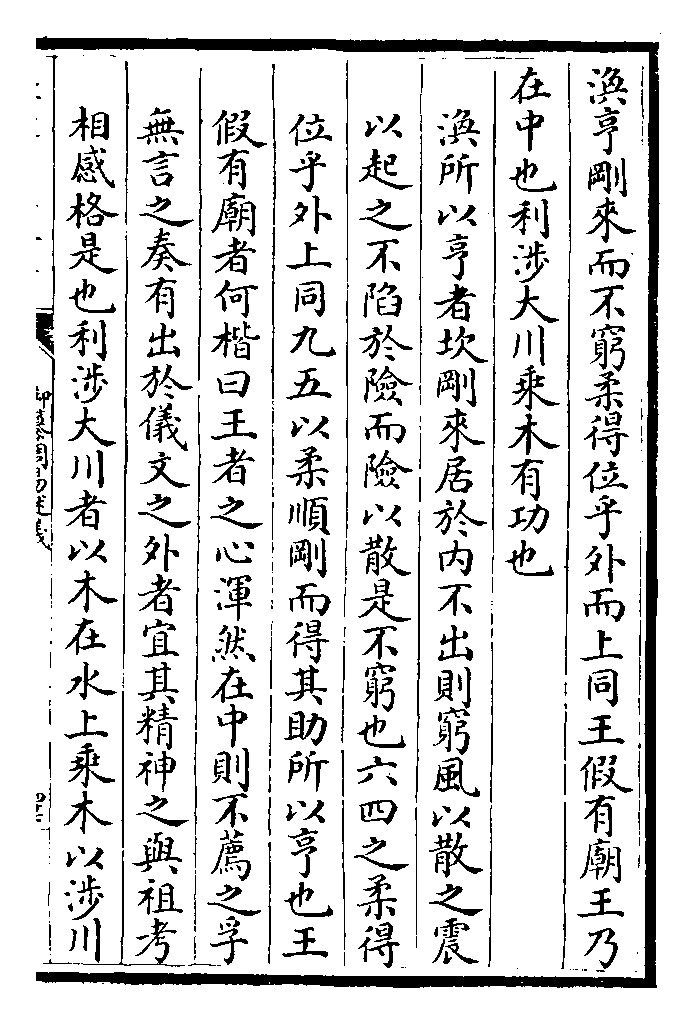 渙亨剛來而不窮柔得位乎外而上同王假有廟王乃
在中也利涉大川乗木有功也
渙所以亨者坎剛來居於内不出則窮風以散之震
以起之不陷於險而險以散是不窮也六四之柔得
位乎外上同九五以柔順剛而得其助所以亨也王
假有廟者何楷曰王者之心渾然在中則不薦之孚
無言之奏有出於儀文之外者宜其精神之與祖考
相感格是也利涉大川者以木在水上乗木以涉川
御纂周易述義